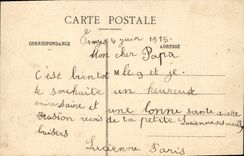 CARTE POSTALE
CORRESPONDANCE
ADRESSE
4 juin 1915.
Mon cher Papa
C'est bientôt le 9 et je
te souhaite un heureux
anniversaire et une bonne santé
occasion reçois de ta petite Lucienne
baisers
Lucienne Paris